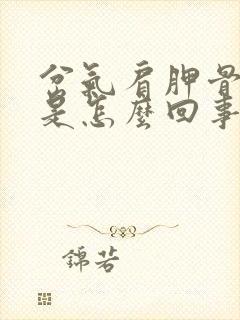 岔氣肩胛骨
是怎麼回事
錦若